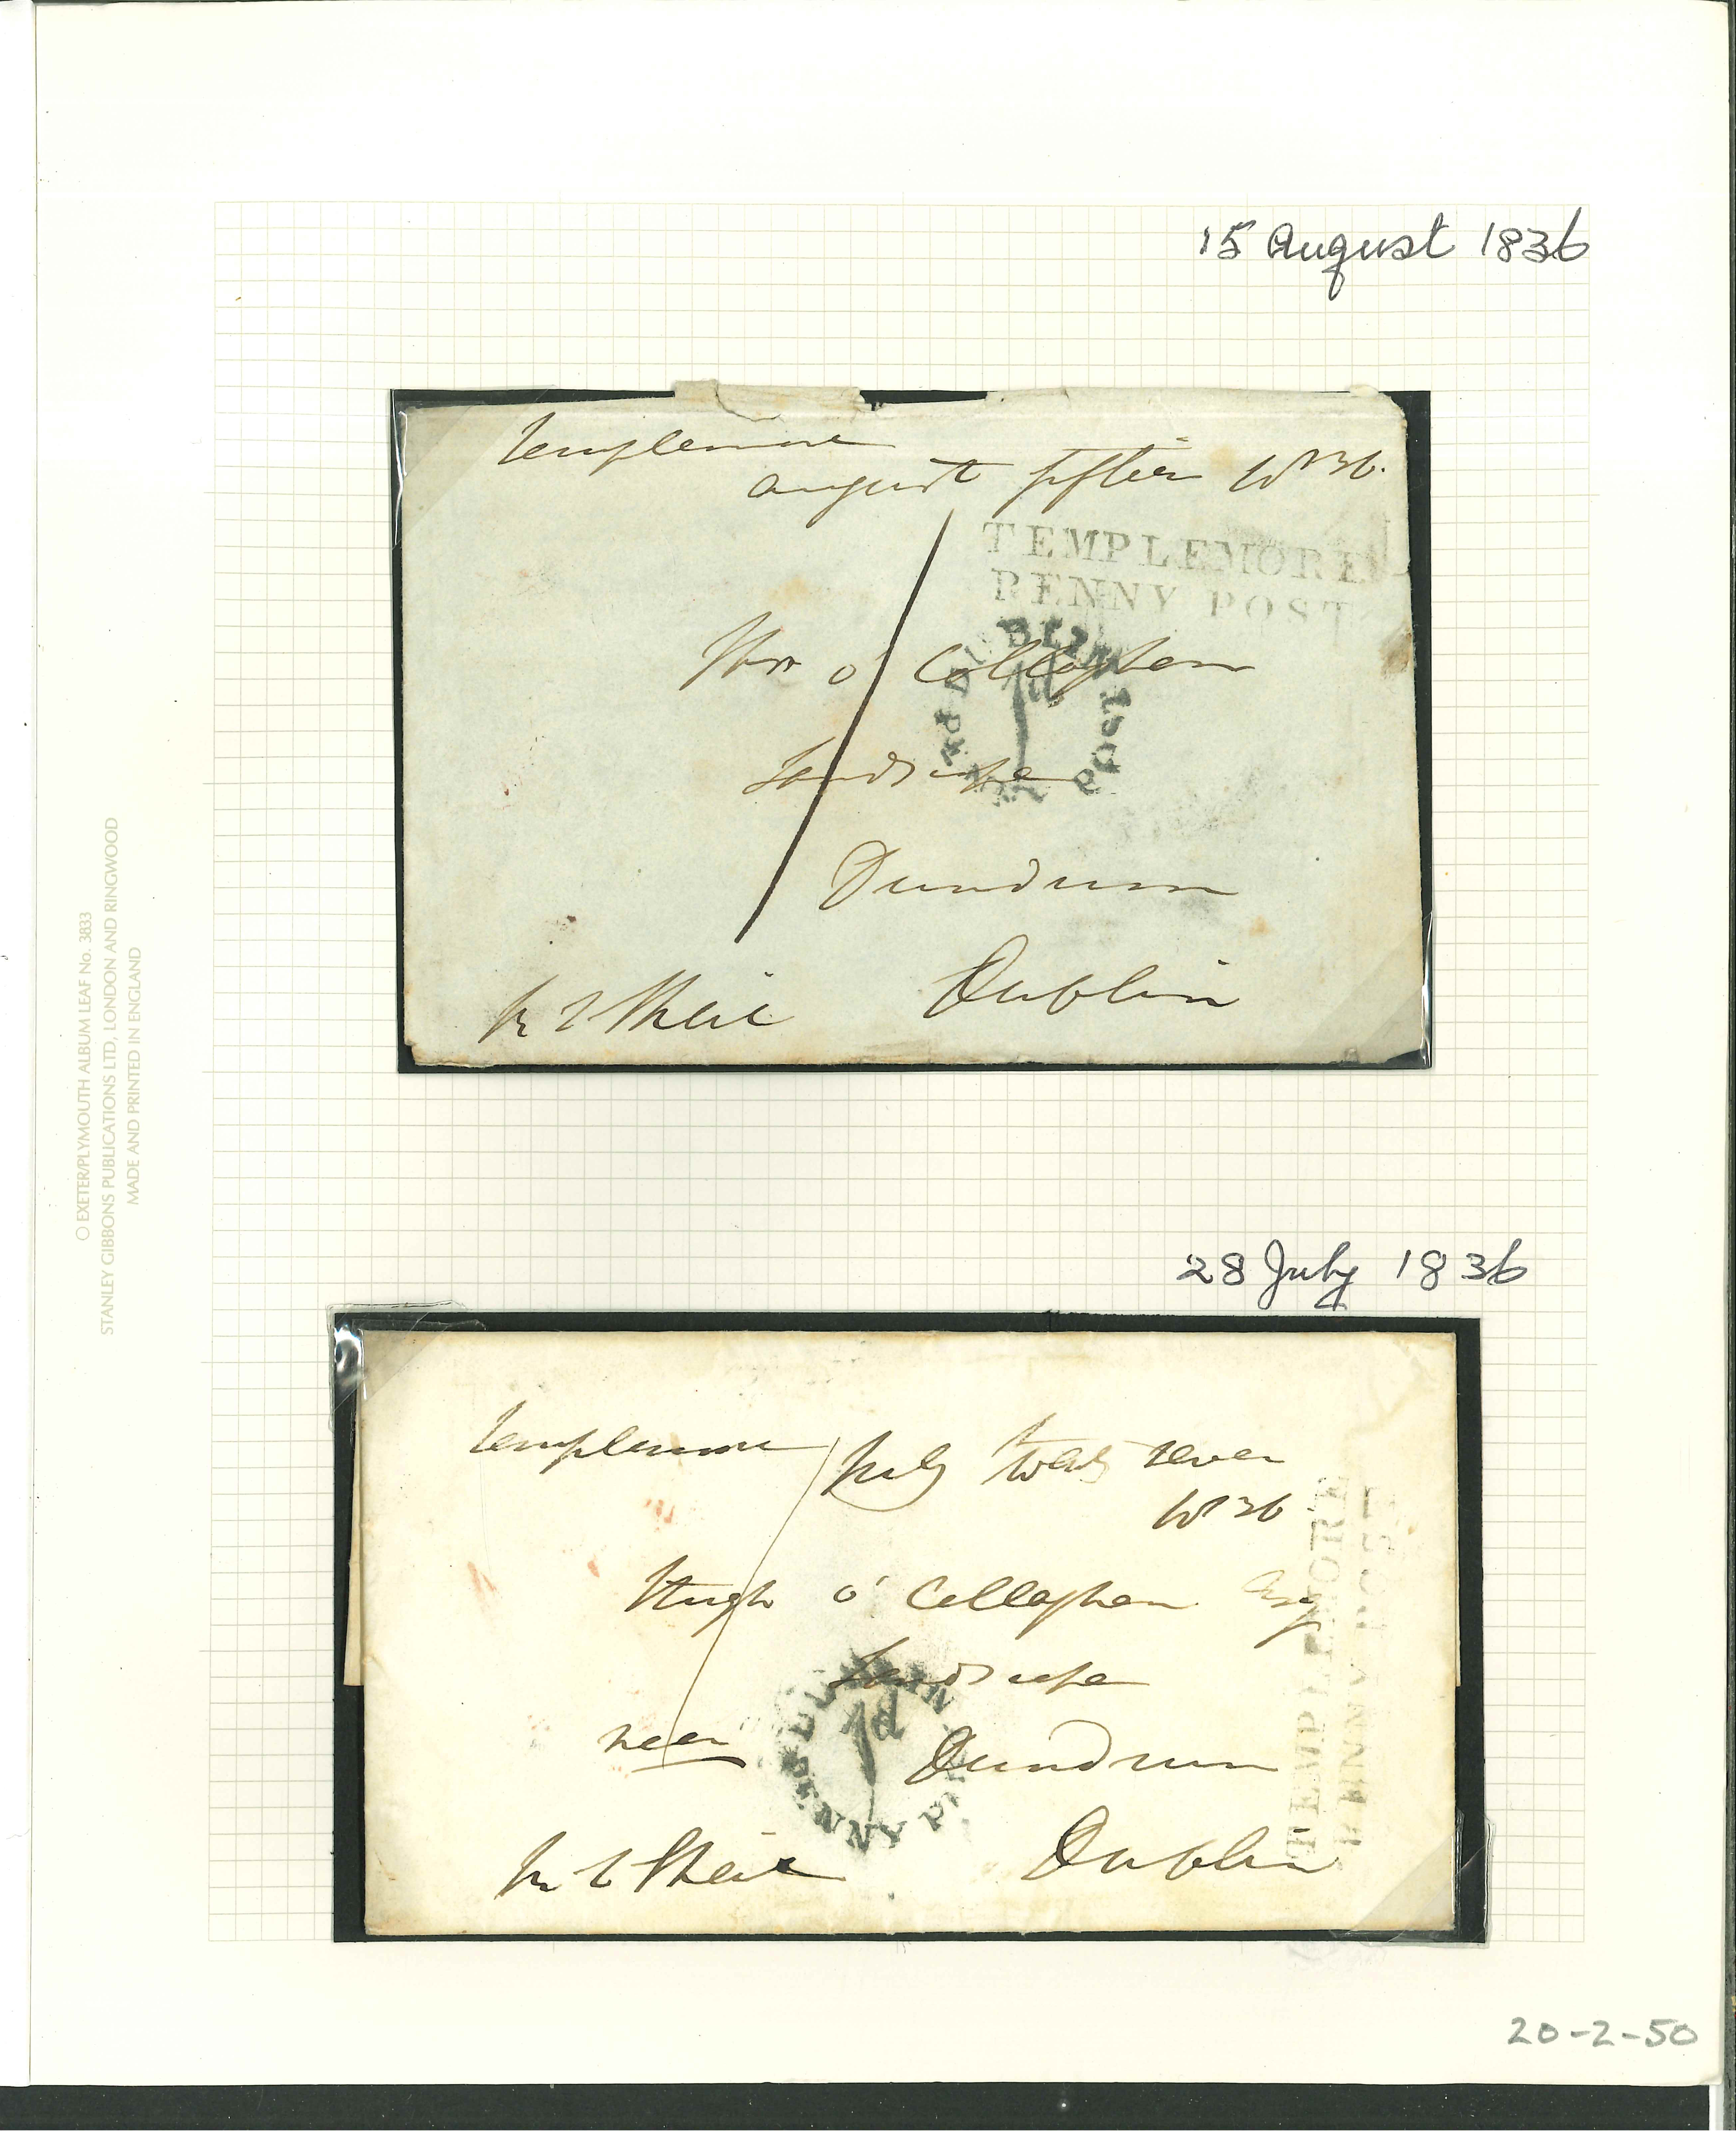 15 August 1836
Templemore
august fifteen 1836.
TEMPLEMORE
PENNY POST
DUBLIN PENNY POST
1d
Mrs o' Callaghan
Landscape
Dundrum
Dublin
R L Sheil
28 July 1836
Templemore July twenty seven
1836
TEMPLEMORE
PENNY POST
Hugh o' Callaghan Esq
Landscape
DUBLIN PENNY P
1d
near Dundrum
R L Sheil Dublin
20-2-50
O EXETER/PLYMOUTH ALBUM LEAF No. 3833
STANLEY GIBBONS PUBLICATIONS LTD, LONDON AND RINGWOOD
MADE AND PRINTED IN ENGLAND